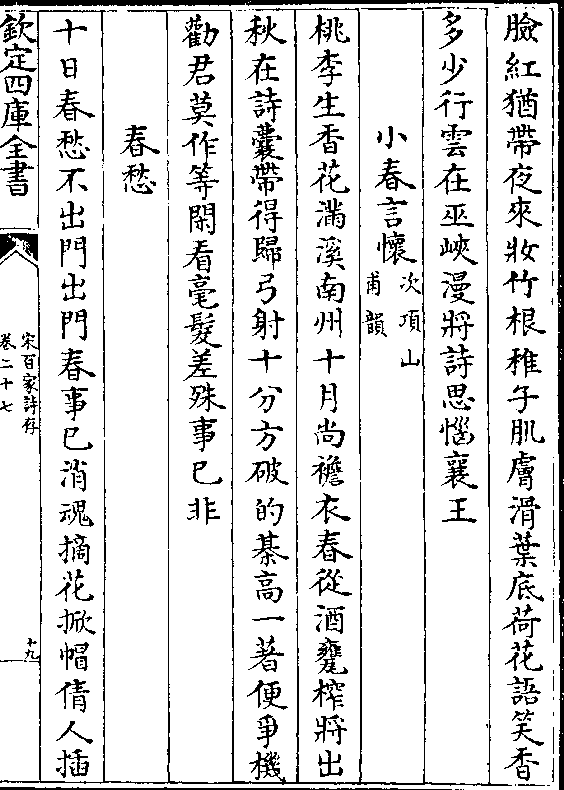 臉紅猶帶夜來妝竹根稚子肌膚滑葉底荷花語笑香
多少行雲在巫峽漫將詩思惱襄王
小春言懷次項山甫韻
桃李生香花滿溪南州十月尚襜衣春從酒甕榨將出
秋在詩囊帶得歸弓射十分方破的棊高一著便爭機
勸君莫作等閑看毫髮差殊事已非
春愁
十日春愁不出門出門春事已消魂摘花掀帽倩人插
欽定四庫全書
宋百家詩存
卷二十七
十九